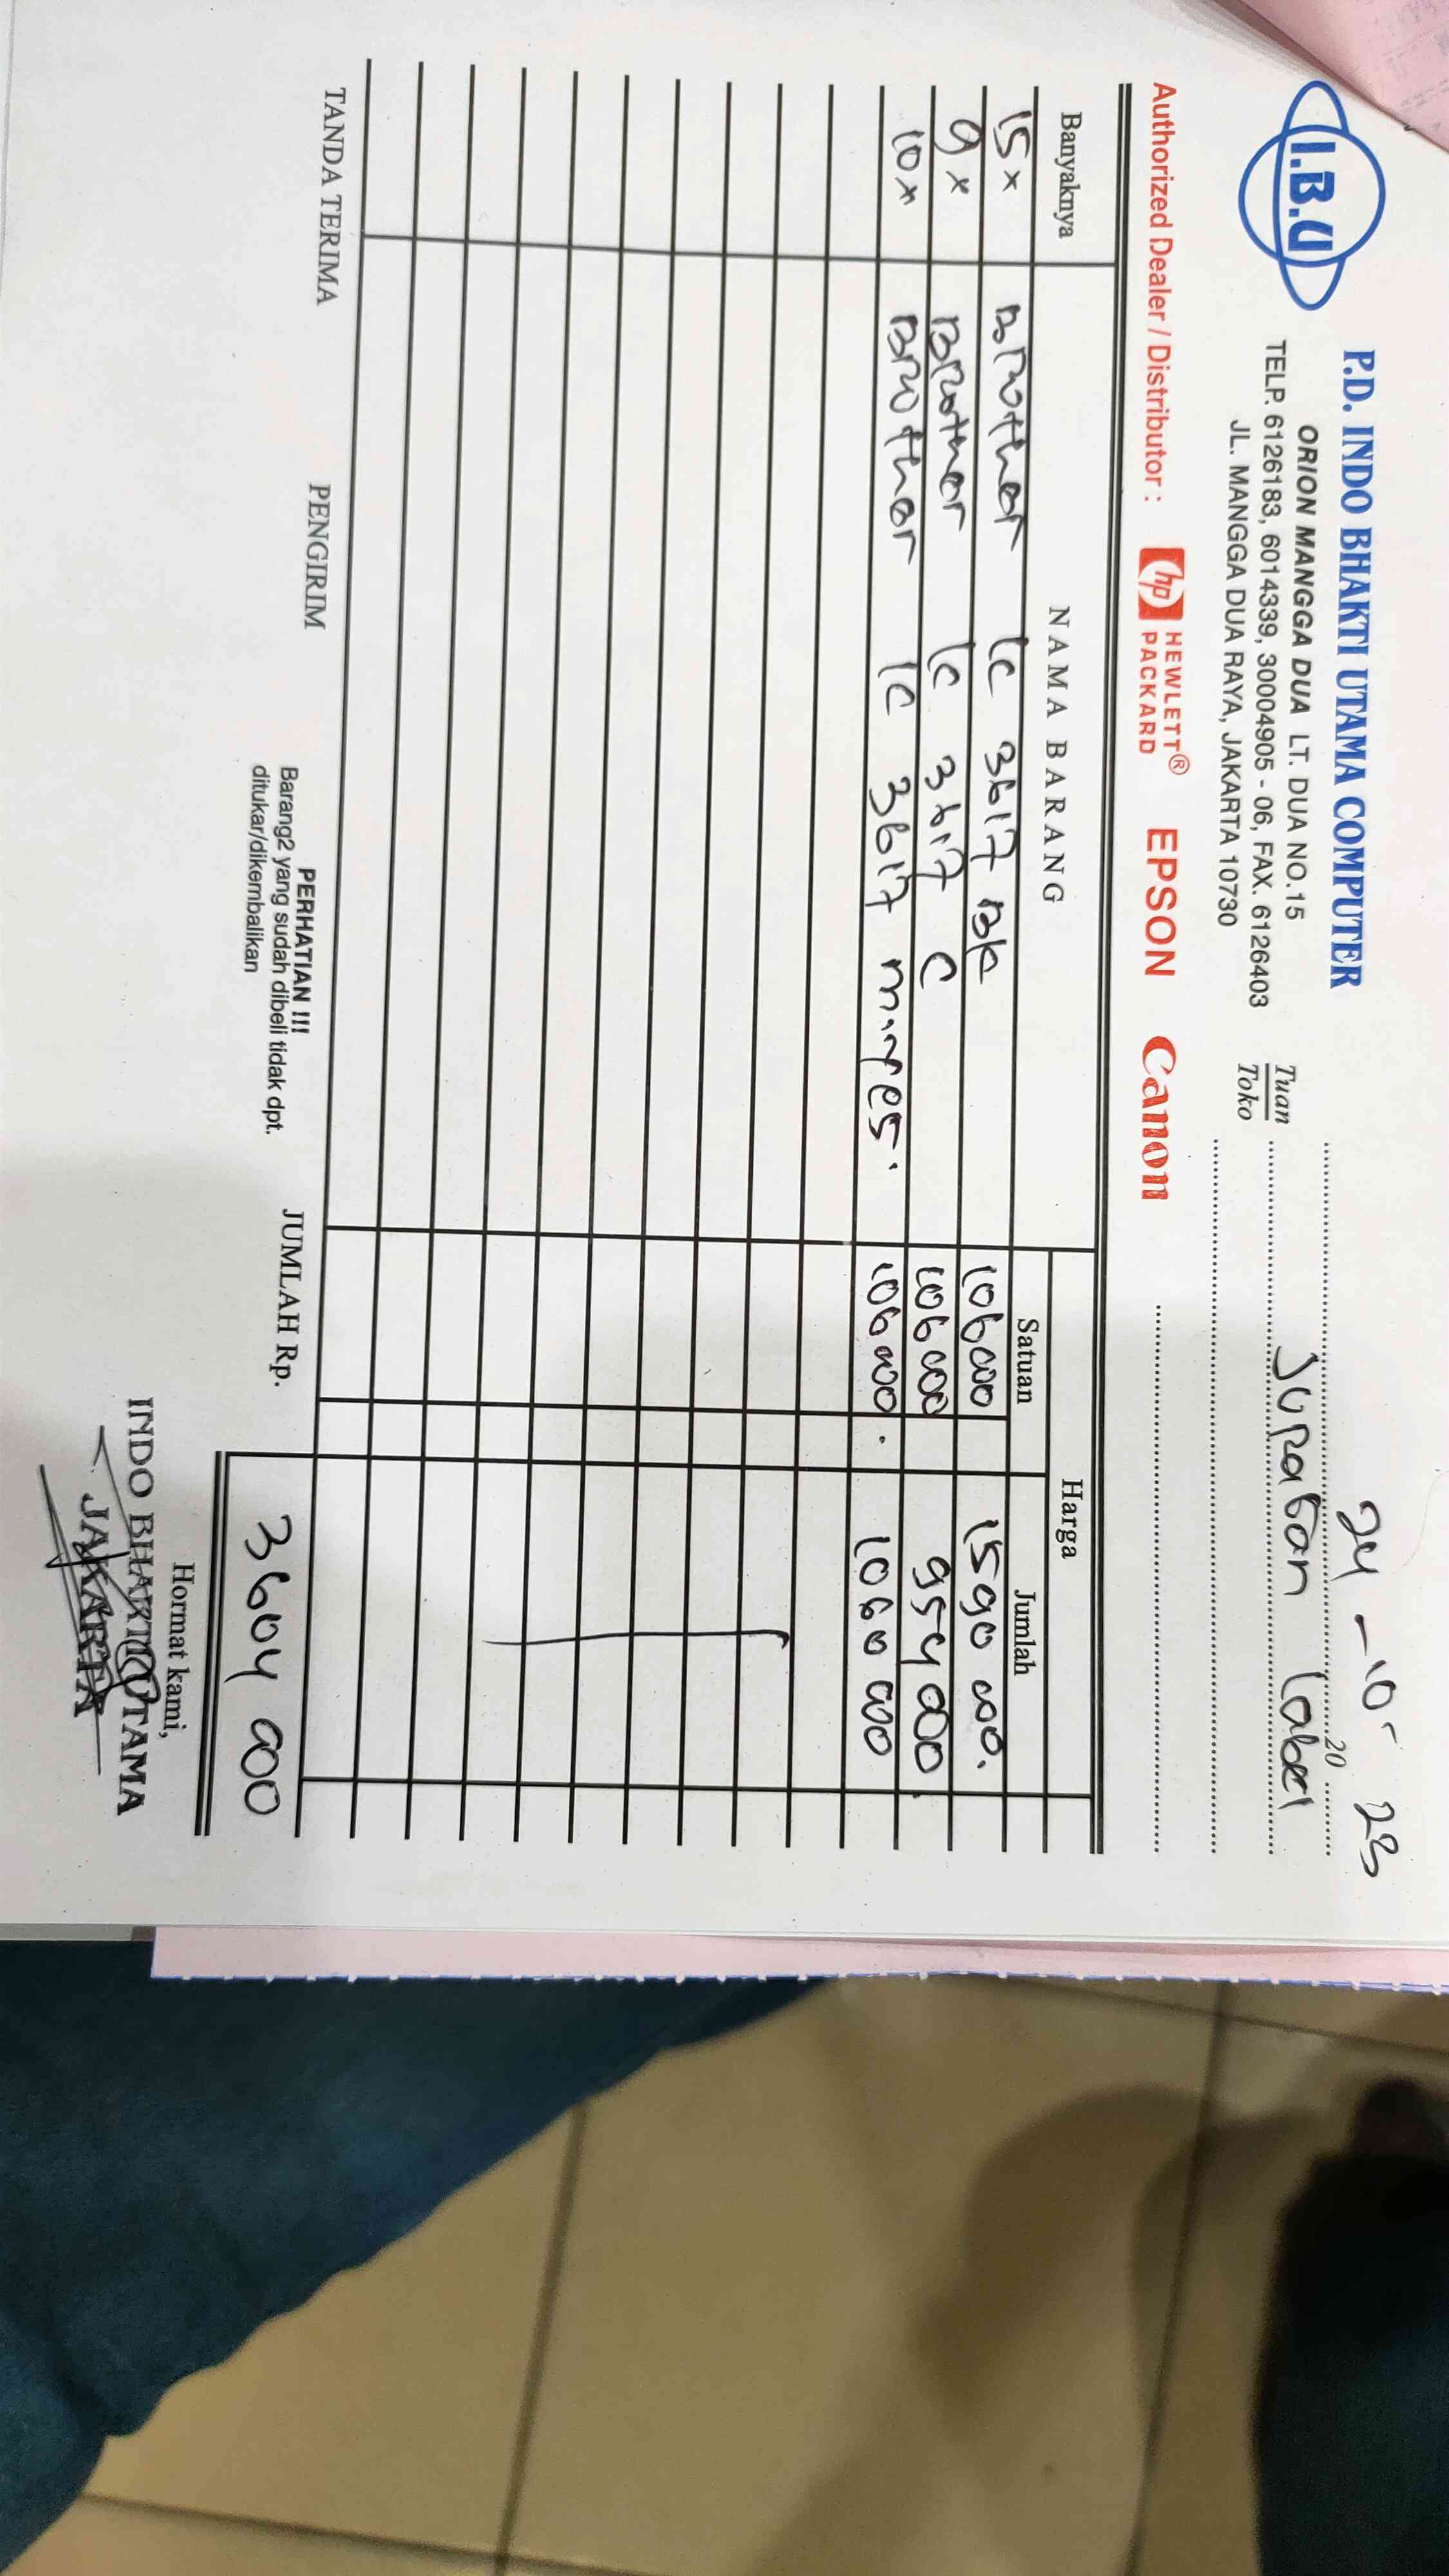 I.B.U
P.D. INDO BHAKTI UTAMA COMPUTER
ORION MANGGA DUA LT. DUA NO.15
TELP. 6126183, 6014339, 30004905 - 06, FAX. 6126403
JL. MANGGA DUA RAYA, JAKARTA 10730
24 - 10 - 23
20
Tuan
Toko
Jupatan label
Authorized Dealer / Distributor : hp HEWLETT® PACKARD EPSON Canon
Banyaknya NAMA BARANG Harga
Satuan Jumlah
15 x Brother lc 3617 BK 106000 1590 000.
9 x Brother lc 3617 C 106 000 954 000
10 x Brother lc 3617 106 000. 1060 000
TANDA TERIMA PENGIRIM
PERHATIAN !!!
Barang2 yang sudah dibeli tidak dpt.
ditukar/dikembalikan
JUMLAH Rp. 3604 000
Hormat kami,
INDO BHAKTI UTAMA
JAKARTA